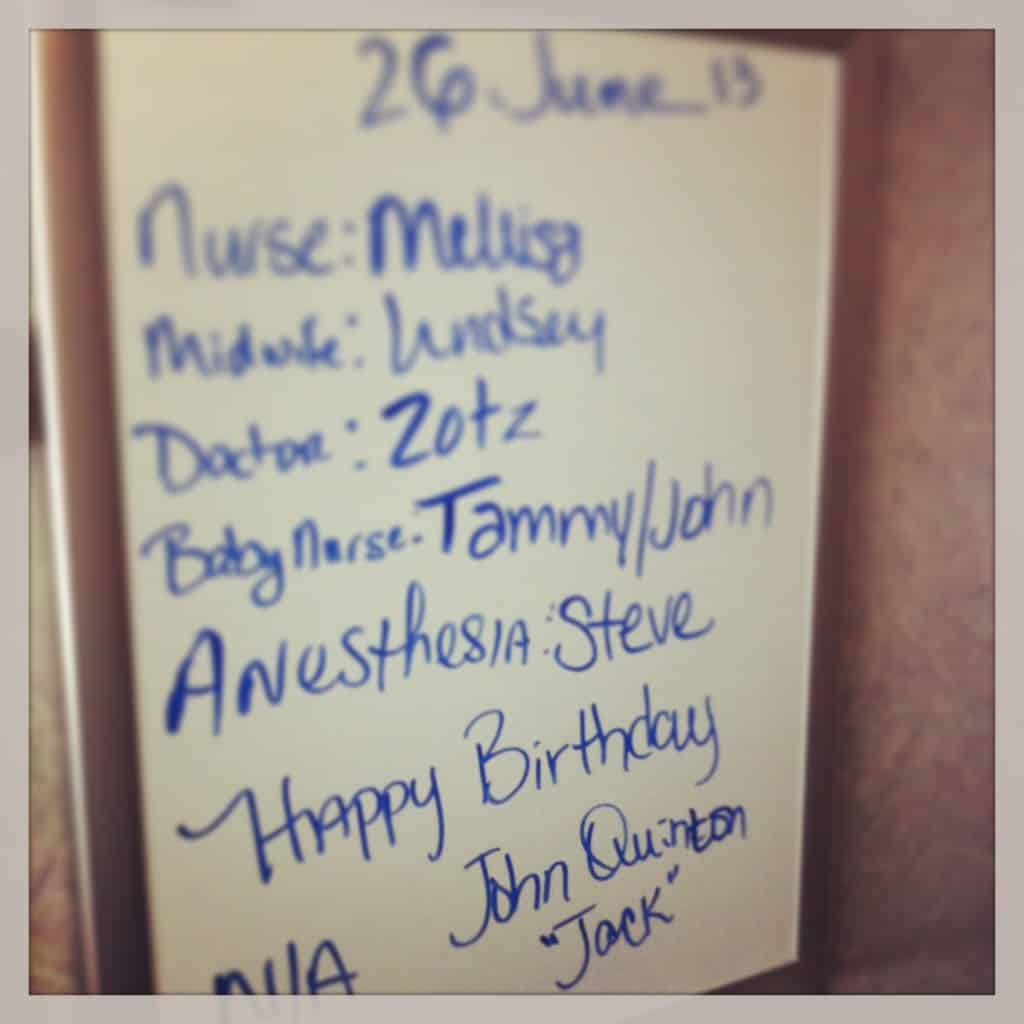 26 June 13
Nurse: Mellisa
Midwife: Lindsey
Doctor: Zotz
Baby Nurse: Tammy/John
Anesthesia: Steve
Happy Birthday
John Quinton
"Jack"
N/A